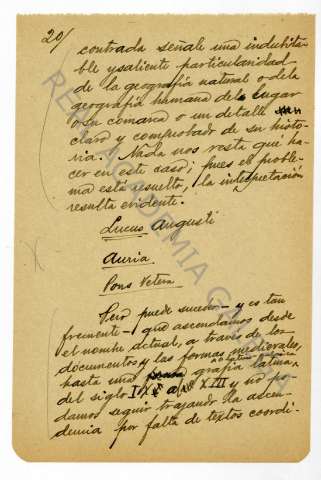 20/
contrada señale una indubita-
ble y saliente particularidad
de la geografía natural o de la
geografía humana del lugar
o su comarca o un detalle
claro y comprobado de su histo-
ria. Nada nos resta que ha-
cer en este caso; pues el proble-
ma está resuelto, la interpretación
resulta evidente.
Lucus Augusti
Auria
Pons Vetera
Pero puede suceder – y es tan
frecuente – que ascendamos desde
el nombre actual, a través de los
documentos y las formas medievales,
hasta una grafía latina,
del siglo IX al XIII y no po-
damos seguir trazando la ascen-
dencia por falta de textos coordi-
REAL ACADEMIA GALEGA